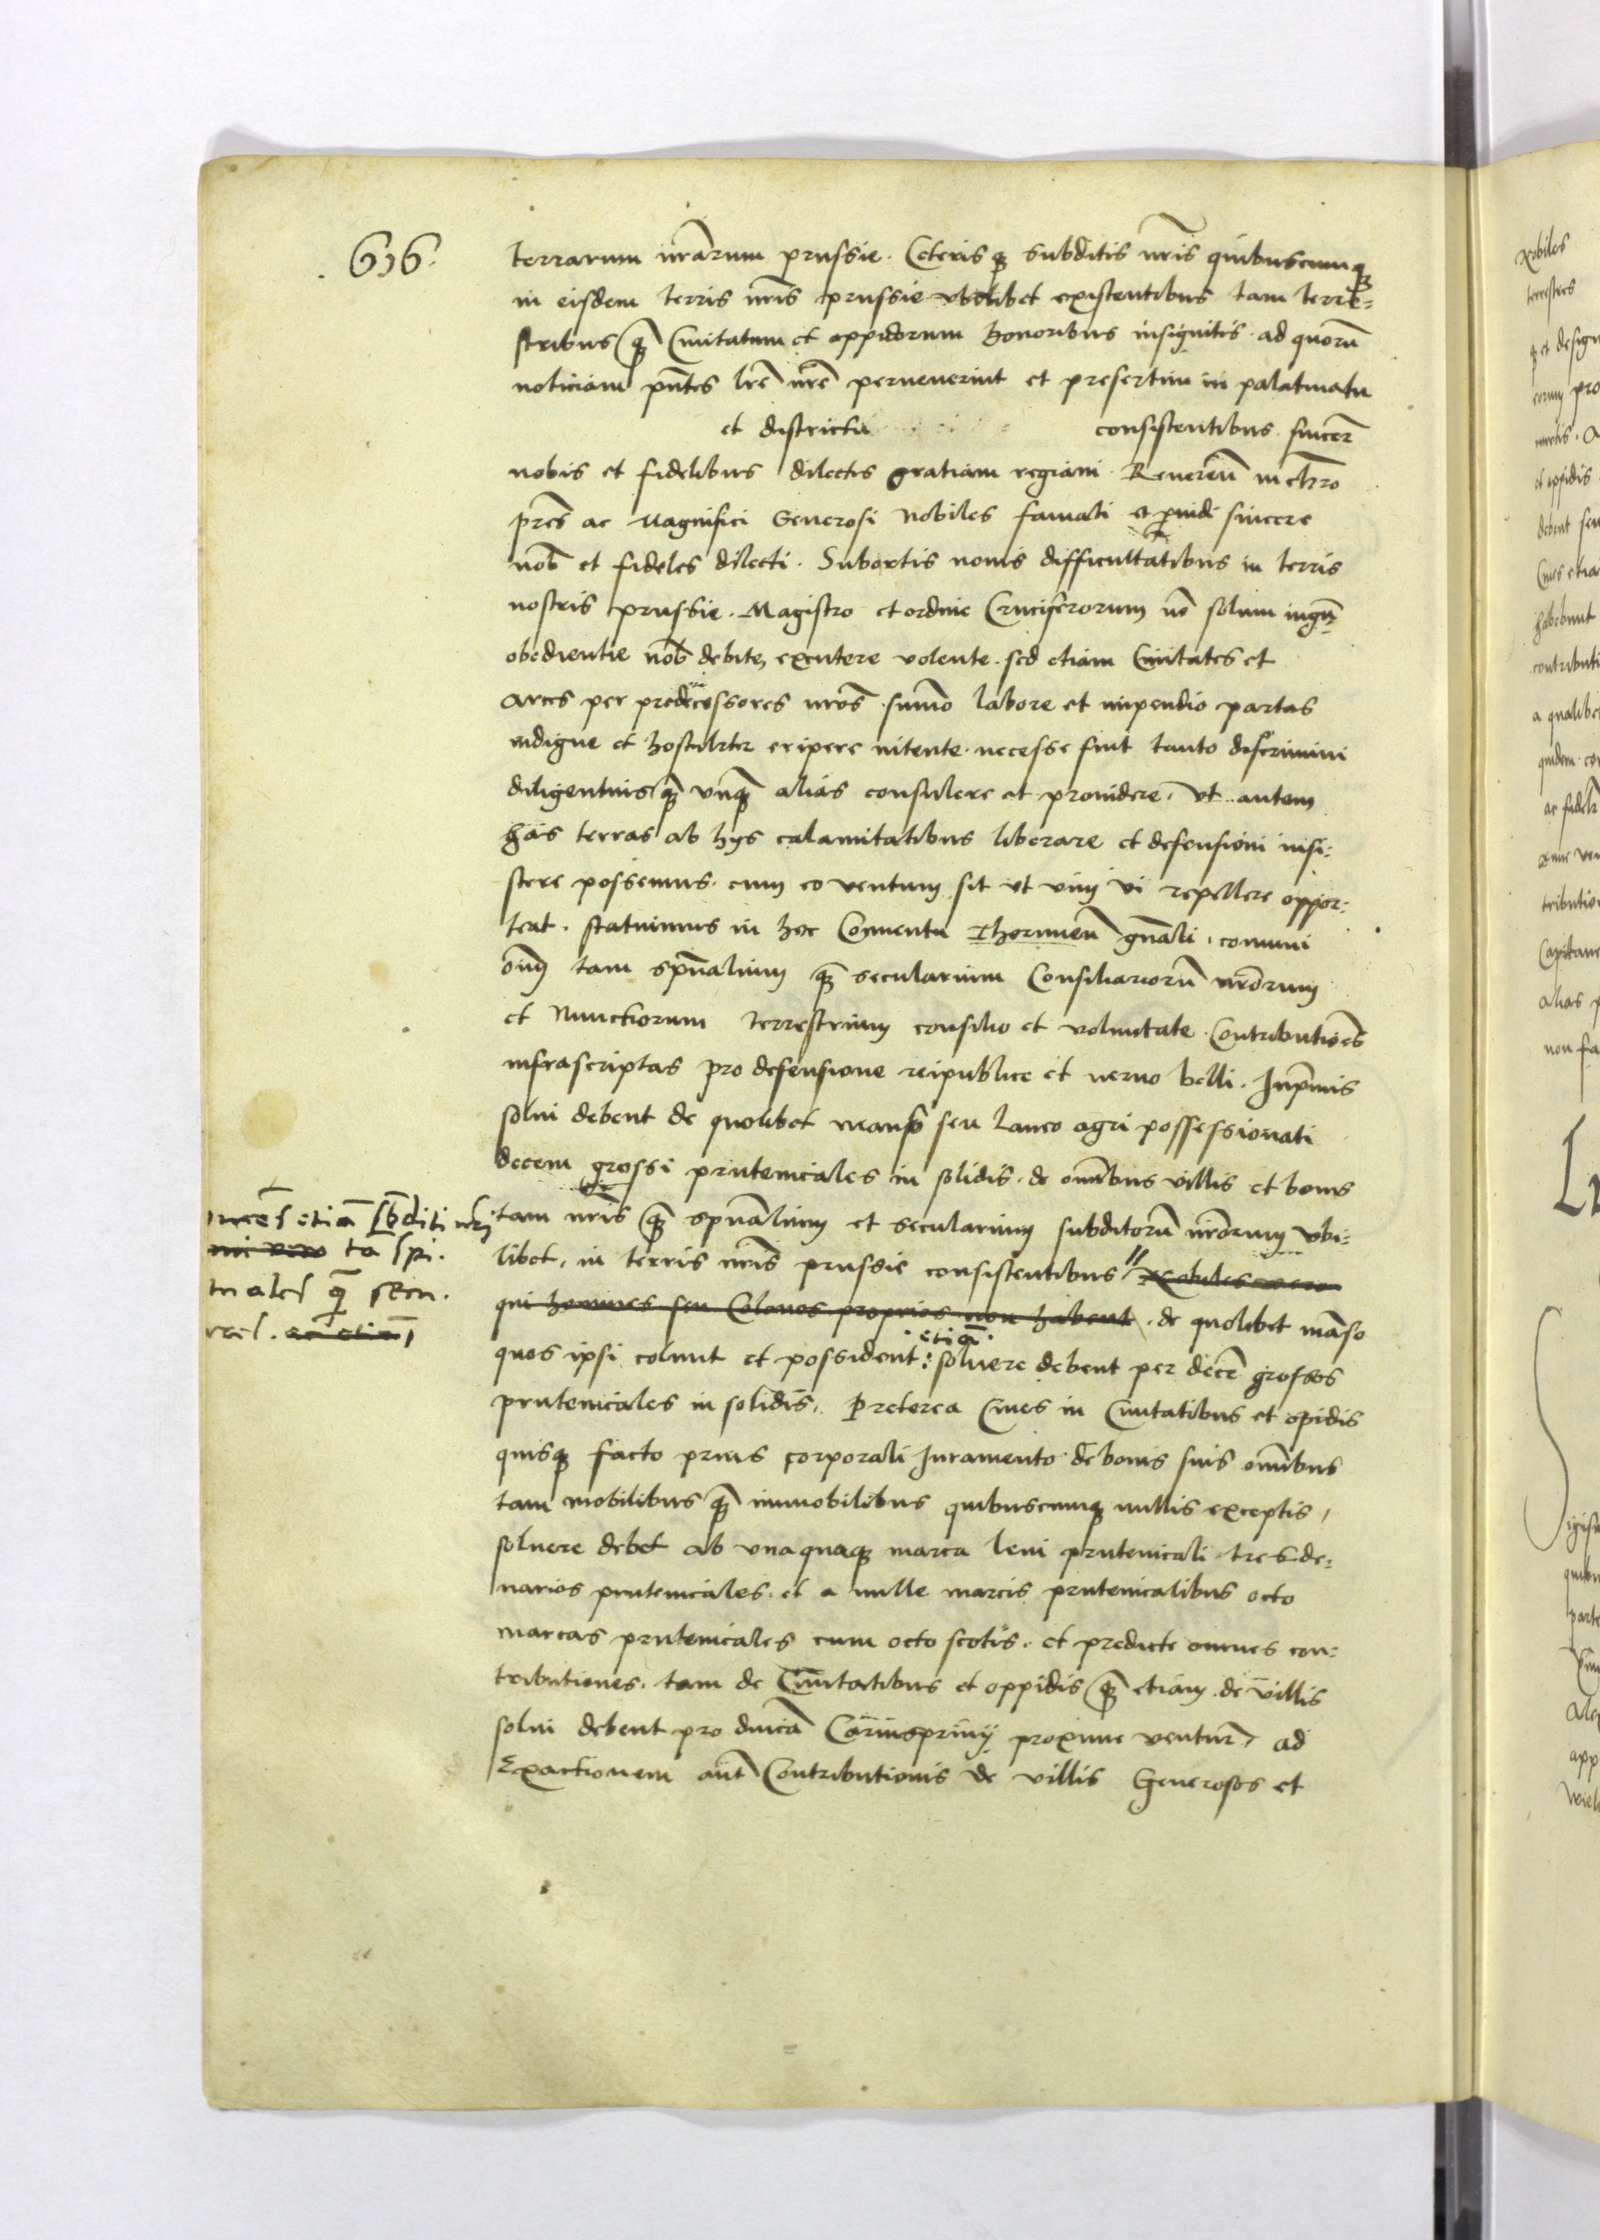 616.
terrarum nr̄arum prussie. Ceteris qꝫ subditis nr̄is quibuscumqꝫ
in eisdem terris nr̄is prussie ubilibet existentibus tam terre=
stribus qꝫ̄ Ciuitatum et oppidorum honoribus insignitis. ad quorū
noticiam pn̄tes lr̄e nr̄e peruenerint et presertim in palatinatu
et districtu consistentibus. sincer̄
nobis et fidelibus dilectis gratiam regiam. Reuerēn in chro
pr̄es ac Magnifici Generosi Nobiles famati et ꝓuidi sincere
nob̄ et fideles dilecti. Subortis nouis difficultatibus in terris
nostris prussie. Magistro et ordine Cruciferorum nō solum iugū
obedientie nob̄ debite, excutere volente. sed etiam Ciuitates et
arces per predecessores nr̄os summo labore et impendio partas
indigne et hostilr̄ eripere nitente. necesse fuit tanto discrimini
diligentius qꝫ̄ vnqꝫ̄ alias consulere et prouidere. Ut autem
has terras ab hys calamitatibus liberare et defensioni insi=
stere possemus. cum eo ventum sit ut vim vi repellere oppor=
teat. statuimus in hoc Conuentu Thorunen̄ gn̄ali. comuni
om̄ tam spūalium qꝫ̄ secularium Consiliariorū nr̄orum
et Nunctiorum terrestrium consilio et voluntate. Contributiones
infrascriptas pro defensione reipublice et neruo belli. Inprimis
solui debent de quolibet manso seu Laneo agri possessionati
decem grossi prutenicales in solidis. de omnibus villis et bonis
tam nr̄is qꝫ̄ spūalium et secularium subditorū nr̄orum ubi=
libet. in terris nr̄is prussie consistentibus // Nobiles vero
qui homines seu Colonos proprios non habent. de quolibet māso
etiā
quos ipsi colunt et possident: soluere debent per decē grossos
prutenicales in solidis. Preterea Ciues in Ciuitatibus et opidis
quisqꝫ facto prius corporali Juramento de bonis suis omnibus
tam mobilibus qꝫ̄ immobilibus quibuscumqꝫ nullis exceptis,
soluere debet ab unaquaqꝫ marca leui prutenicali tres de=
narios prutenicales. et a mille marcis prutenicalibus octo
marcas prutenicales cum octo scotis. et predicte omnes con=
tributiones. tam de Ciuitatibus et oppidis qꝫ̄ etiam de villis
solui debent pro dn̄ica Carnispriuij proxime ventur̄, ad
Exactionem aut̄ Contributionis de villis Generosos et
etiā sb̄diti nr̄i
tā spi.
tuales qꝫ̄ secu.